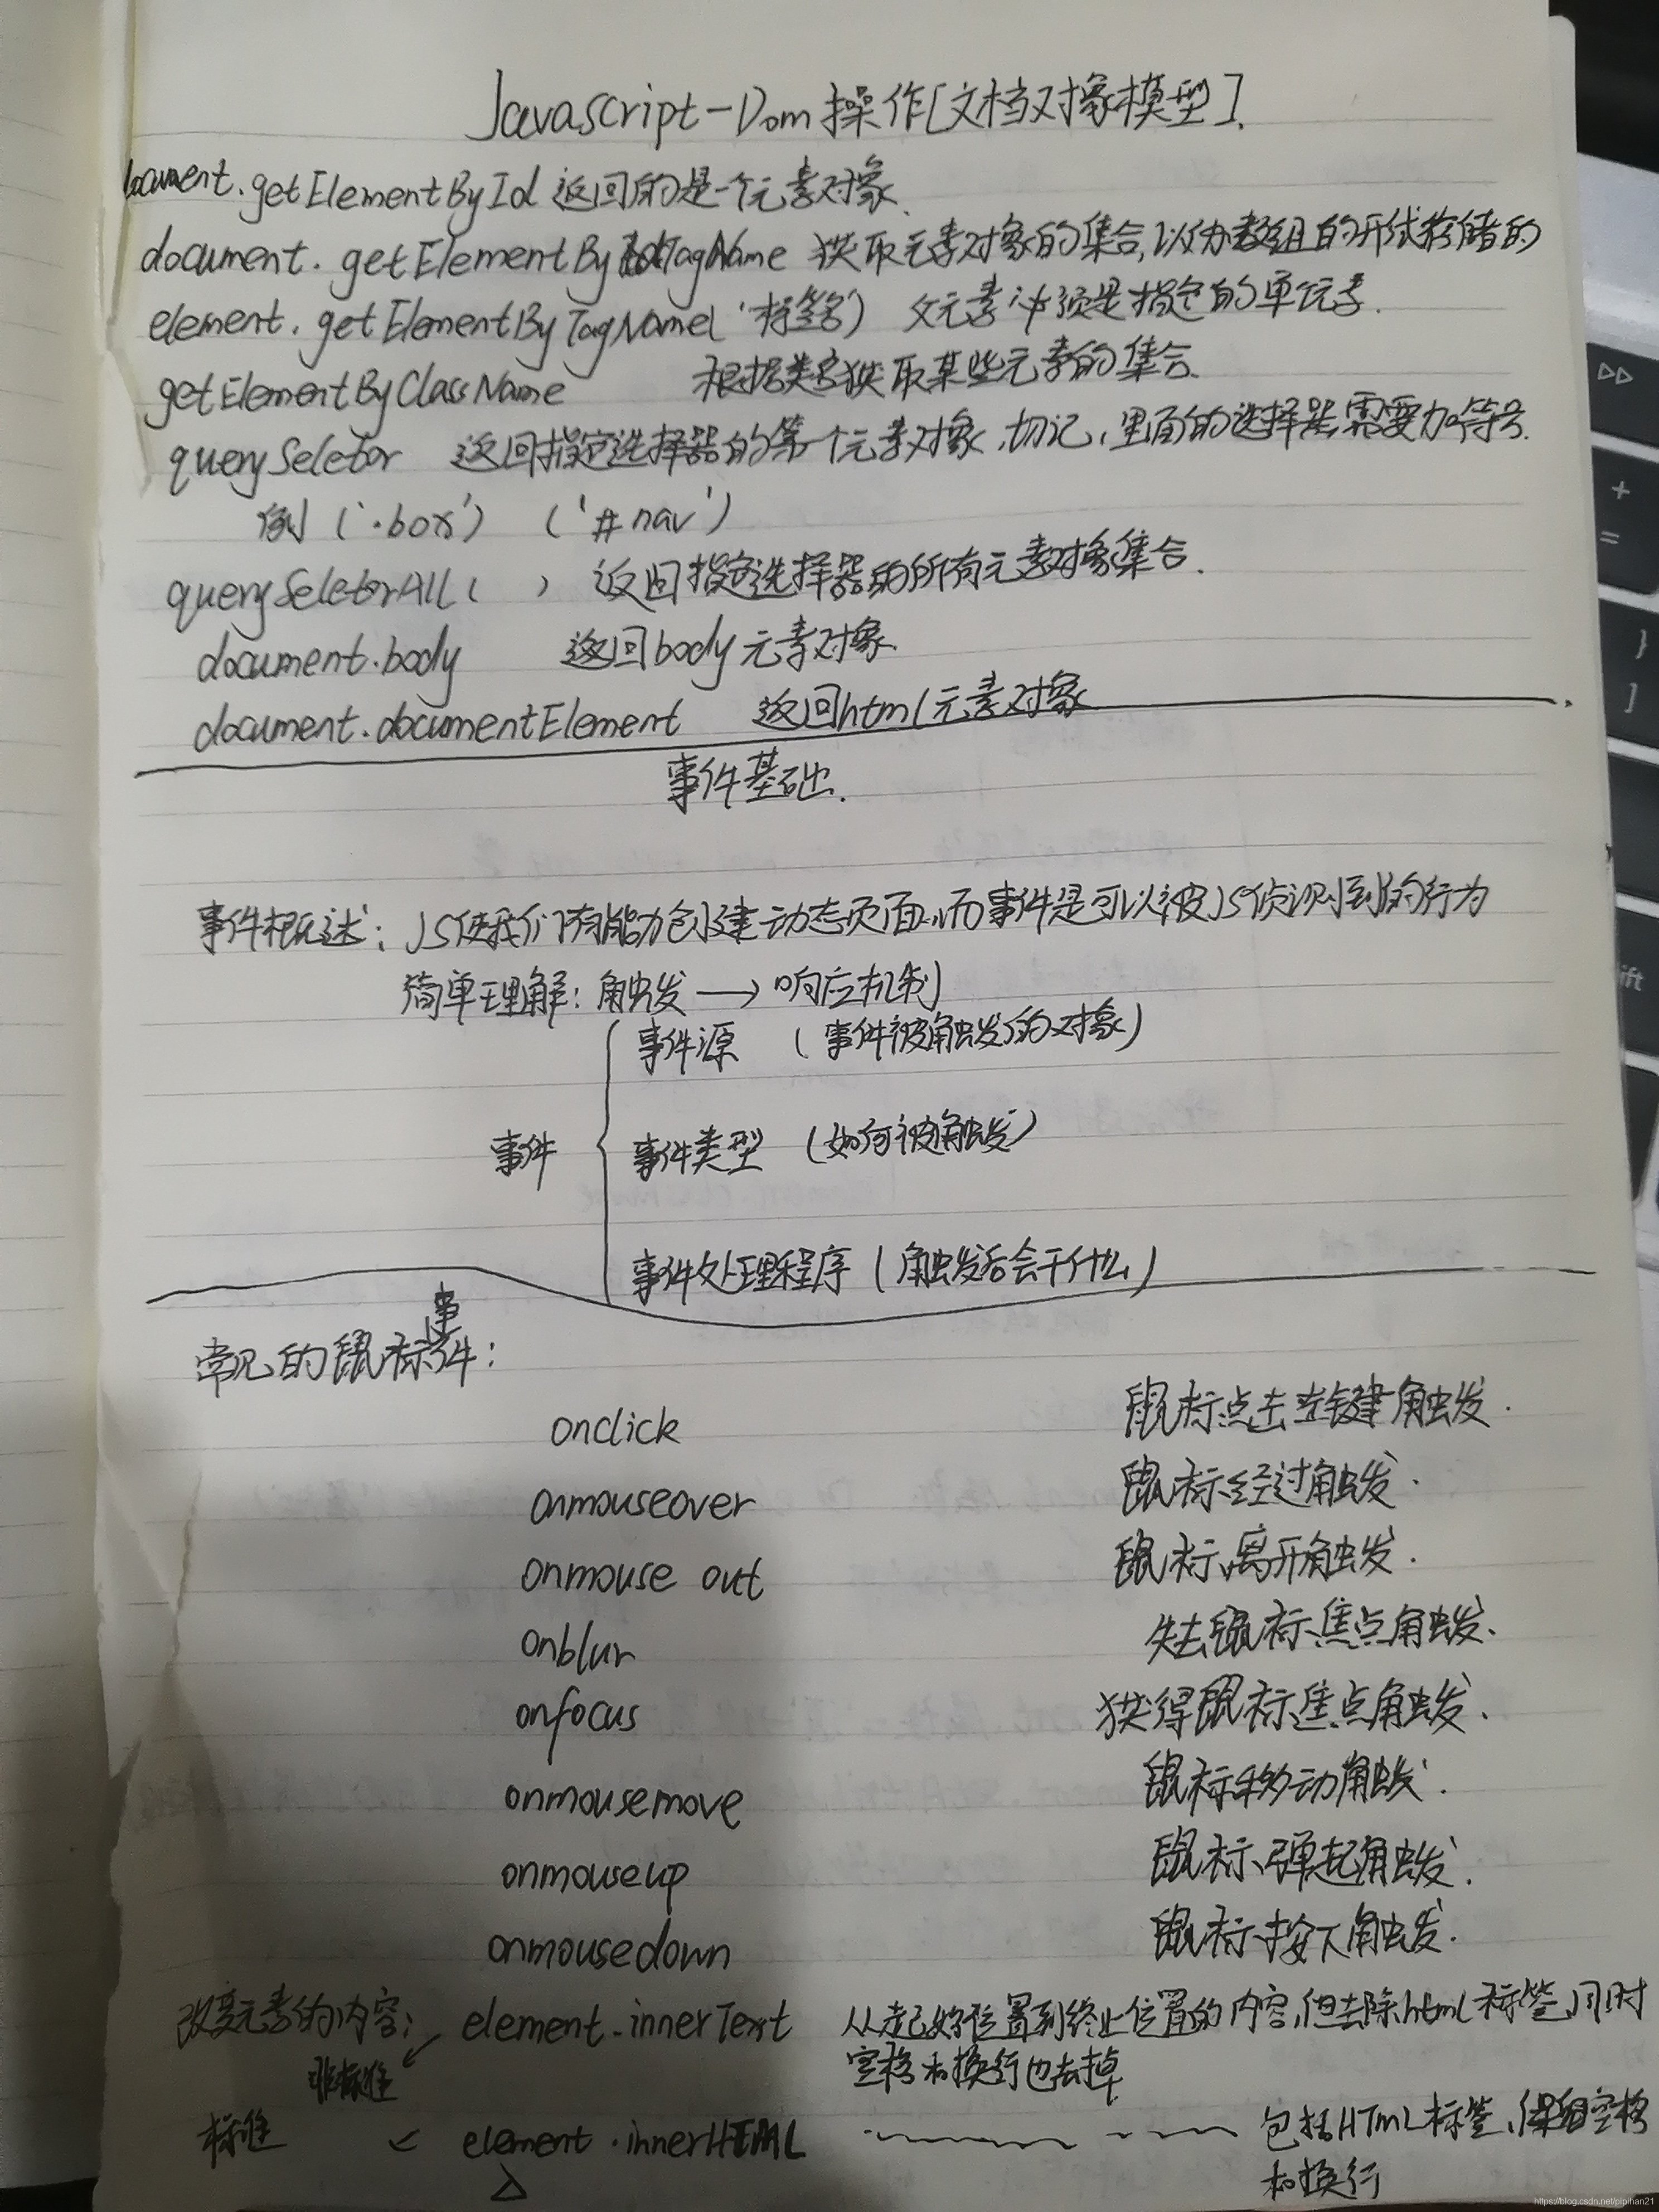 Javascript-Dom操作[文档对象模型].
document.getElementById 返回的是一个元素对象.
document.getElementByTagName 获取元素对象的集合,以伪数组的形式存储的
element.getElementByTagName('标签名') 父元素必须是指定的单元素.
getElementByClassName 根据类名获取某些元素的集合.
querySeletor 返回指定选择器的第一个元素对象,切记,里面的选择器需要加符号.
例('.box') ('#nav')
querySeletorAll( ) 返回指定选择器的所有元素对象集合.
document.body 返回body元素对象.
document.documentElement 返回html元素对象
事件基础.
事件概述: JS使我们有能力创建动态页面,而事件是可以被JS侦测到的行为
简单理解: 触发 → 响应机制
事件源 (事件被触发的对象)
事件 事件类型 (如何被触发)
事件处理程序 (触发后会干什么)
常见的鼠标事件:
onclick 鼠标点击左键触发.
onmouseover 鼠标经过触发.
onmouse out 鼠标离开触发.
onblur 失去鼠标焦点触发.
onfocus 获得鼠标焦点触发.
onmousemove 鼠标移动触发.
onmouseup 鼠标弹起触发.
onmousedown 鼠标按下触发.
改变元素的内容: element.innerText 从起始位置到终止位置的内容,但去除html标签,同时
非标准 空格和换行也去掉
标准 element.innerHTML 包括HTML标签,保留空格
和换行
+
=
}
]
ift
https://blog.csdn.net/pipihan21